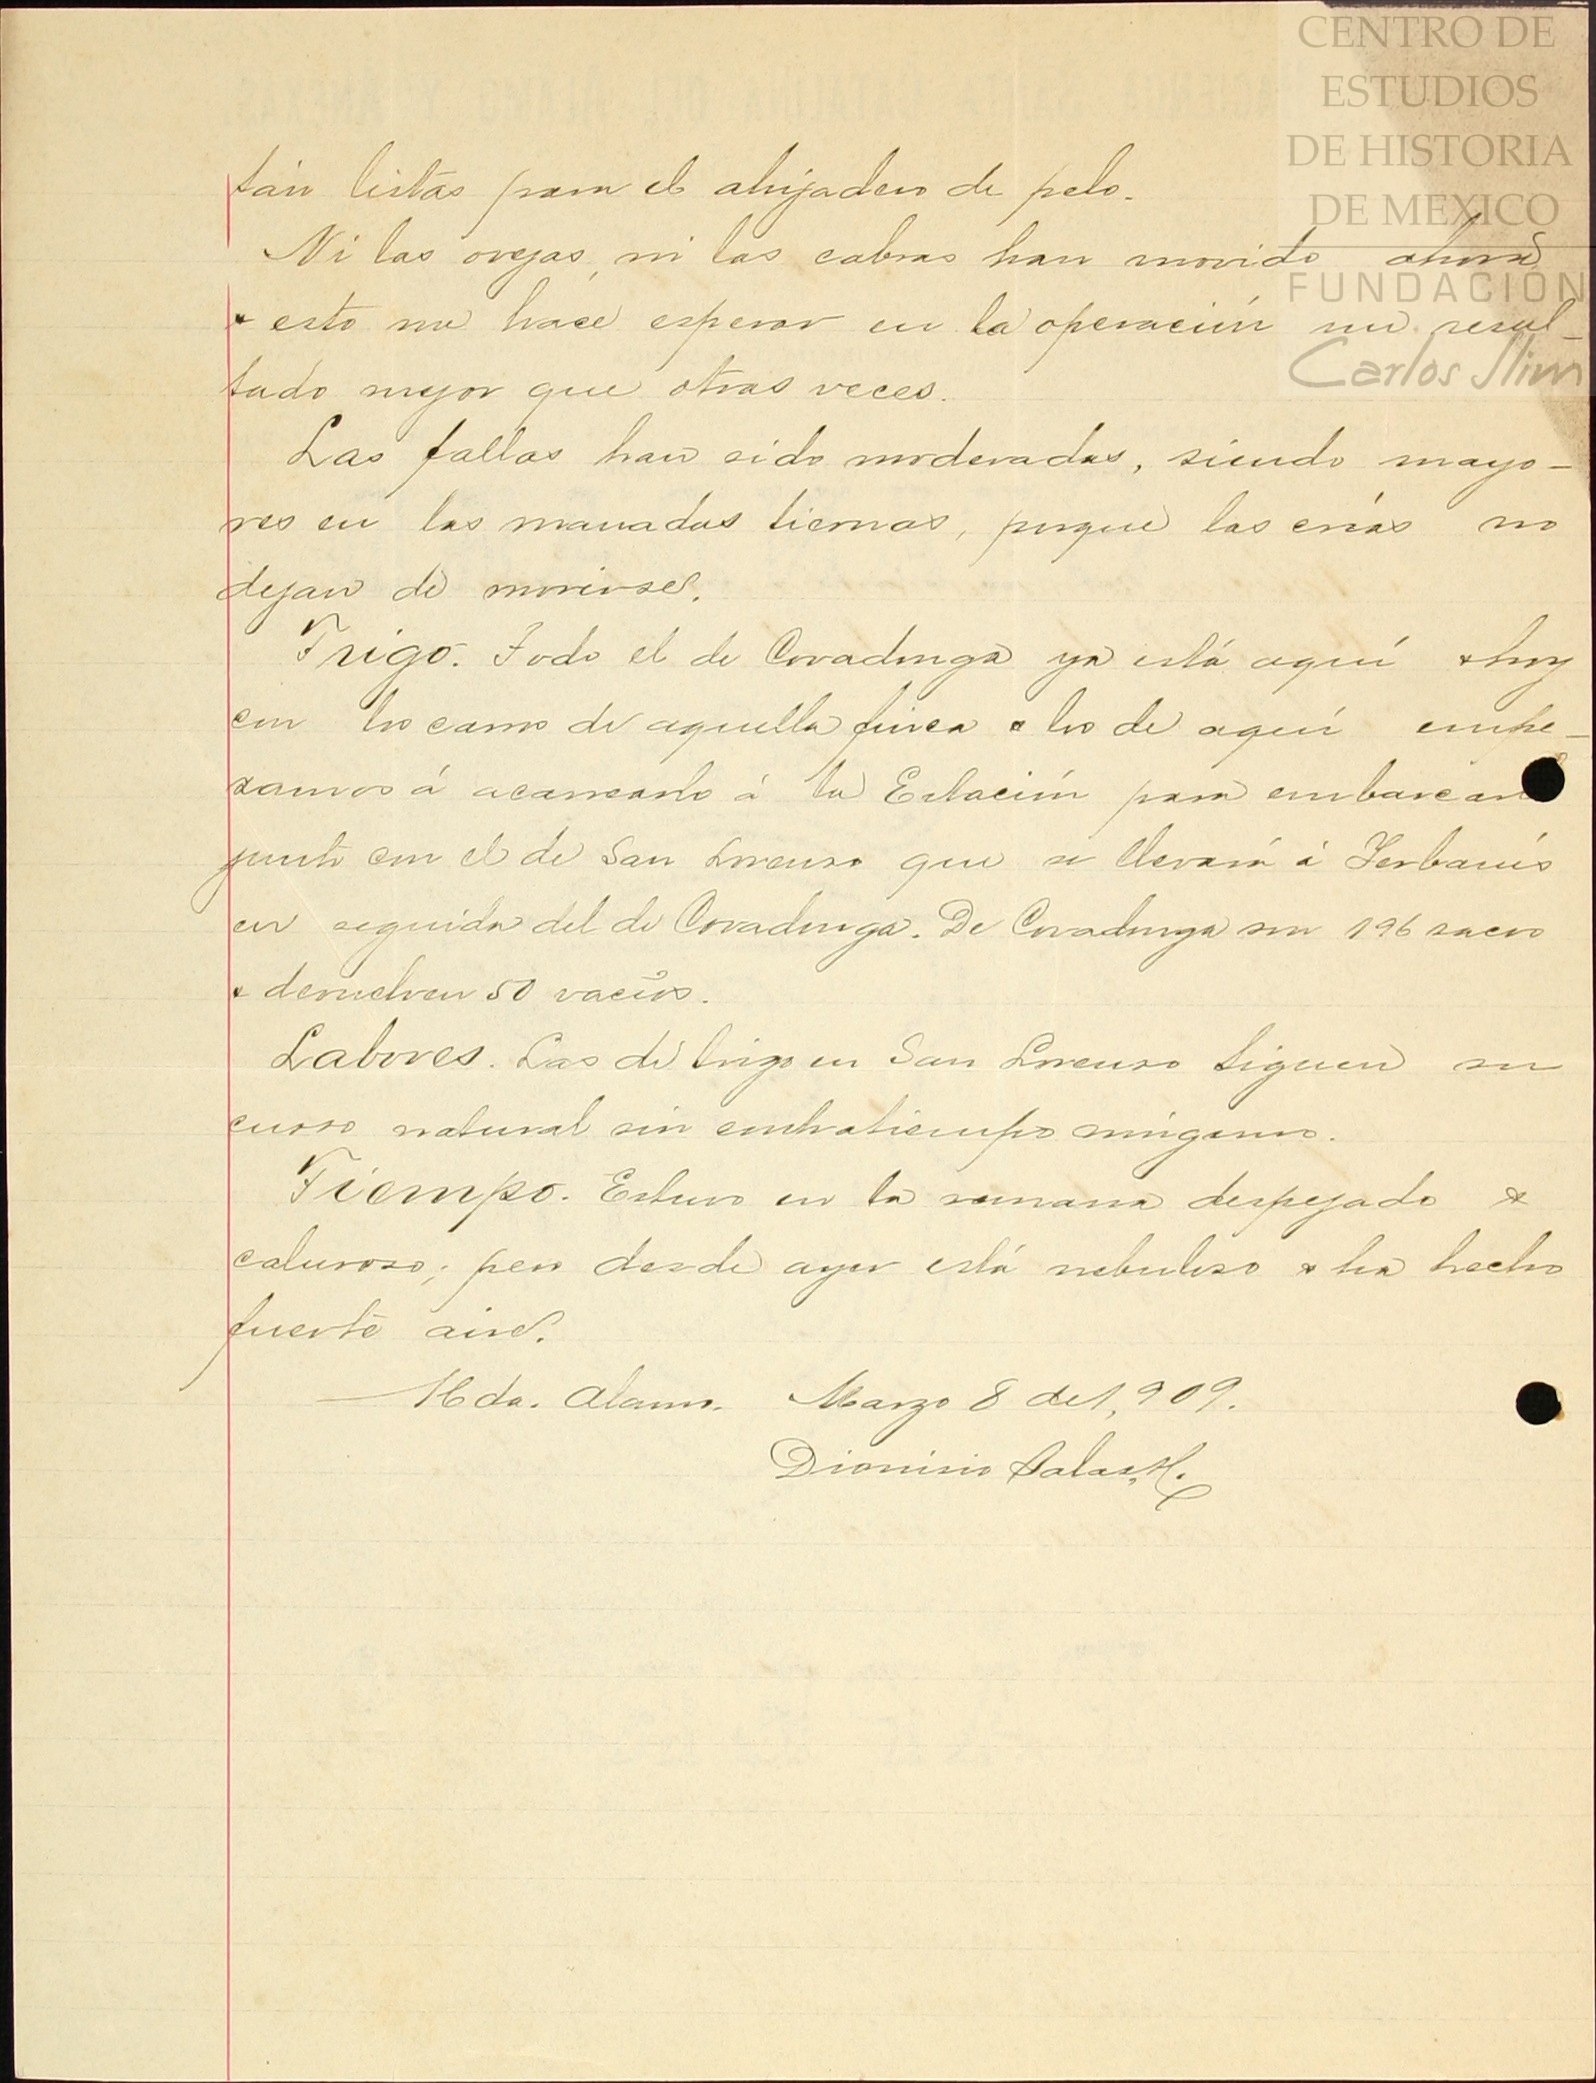 CENTRO DE
ESTUDIOS
DE HISTORIA
DE MEXICO
FUNDACIÓN
Carlos Slim
tán listas para el ahijadero de pelo.
Ni las ovejas, ni las cabras han movido ahora
& esto me hace esperar en la operación un resul-
tado mejor que otras veces.
Las fallas han sido moderadas, siendo mayo-
res en las manadas tiernas, porque las crías no
dejan de morirse.
Trigo. Todo el de Covadonga ya está aquí & hoy
con los carros de aquella finca & los de aquí empe-
zamos á acarrearlo á la Estación para embarcarlo
junto con el de San Lorenzo que se llevará á Yerbanís
en seguida del de Covadonga. De Covadonga son 196 sacos
& devuelven 50 vacíos.
Labores. Las de trigo en San Lorenzo siguen su
curso natural sin contratiempo ninguno.
Tiempo. Estuvo en la semana despejado &
caluroso; pero desde ayer está nebuloso & ha hecho
fuerte aire.
Hda. Alamo. Marzo 8 de 1,909.
Dionisio Salas H.